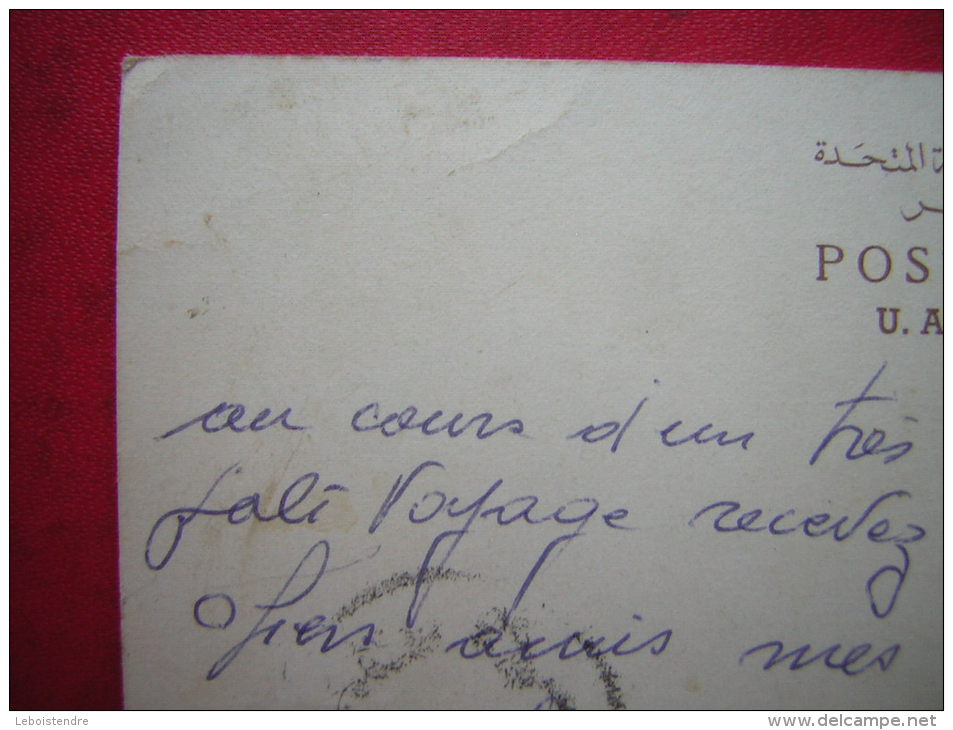 المتحدة
POS
U. A
au cours d'un très
joli voyage recevez
chers amis mes
Leboistendre
www.delcampe.net